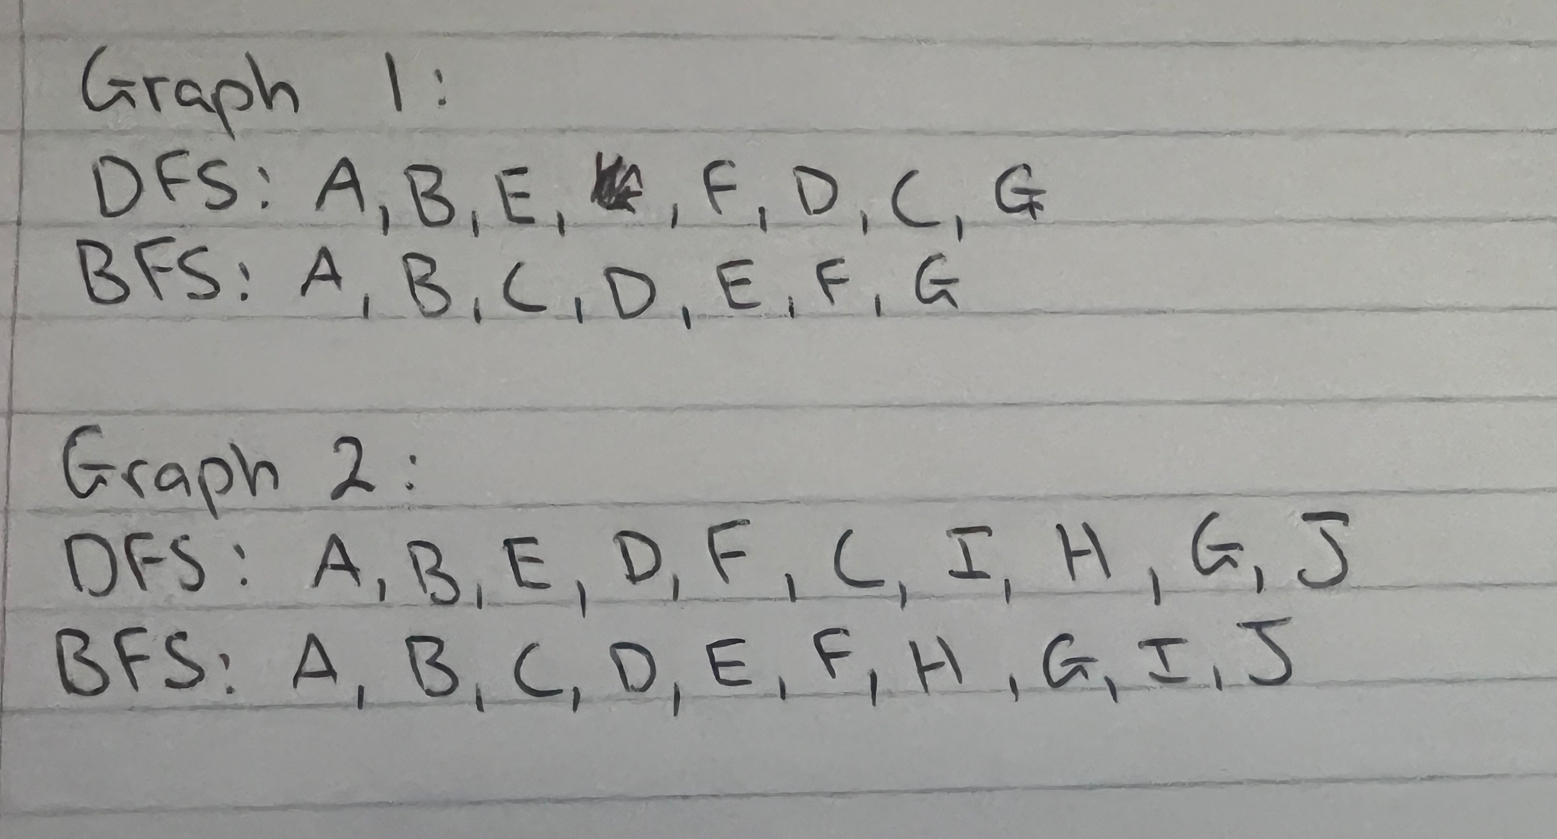 Graph 1:
DFS: A, B, E, , F, D, C, G
BFS: A, B, C, D, E, F, G
Graph 2:
DFS: A, B, E, D, F, C, I, H, G, J
BFS: A, B, C, D, E, F, H, G, I, J